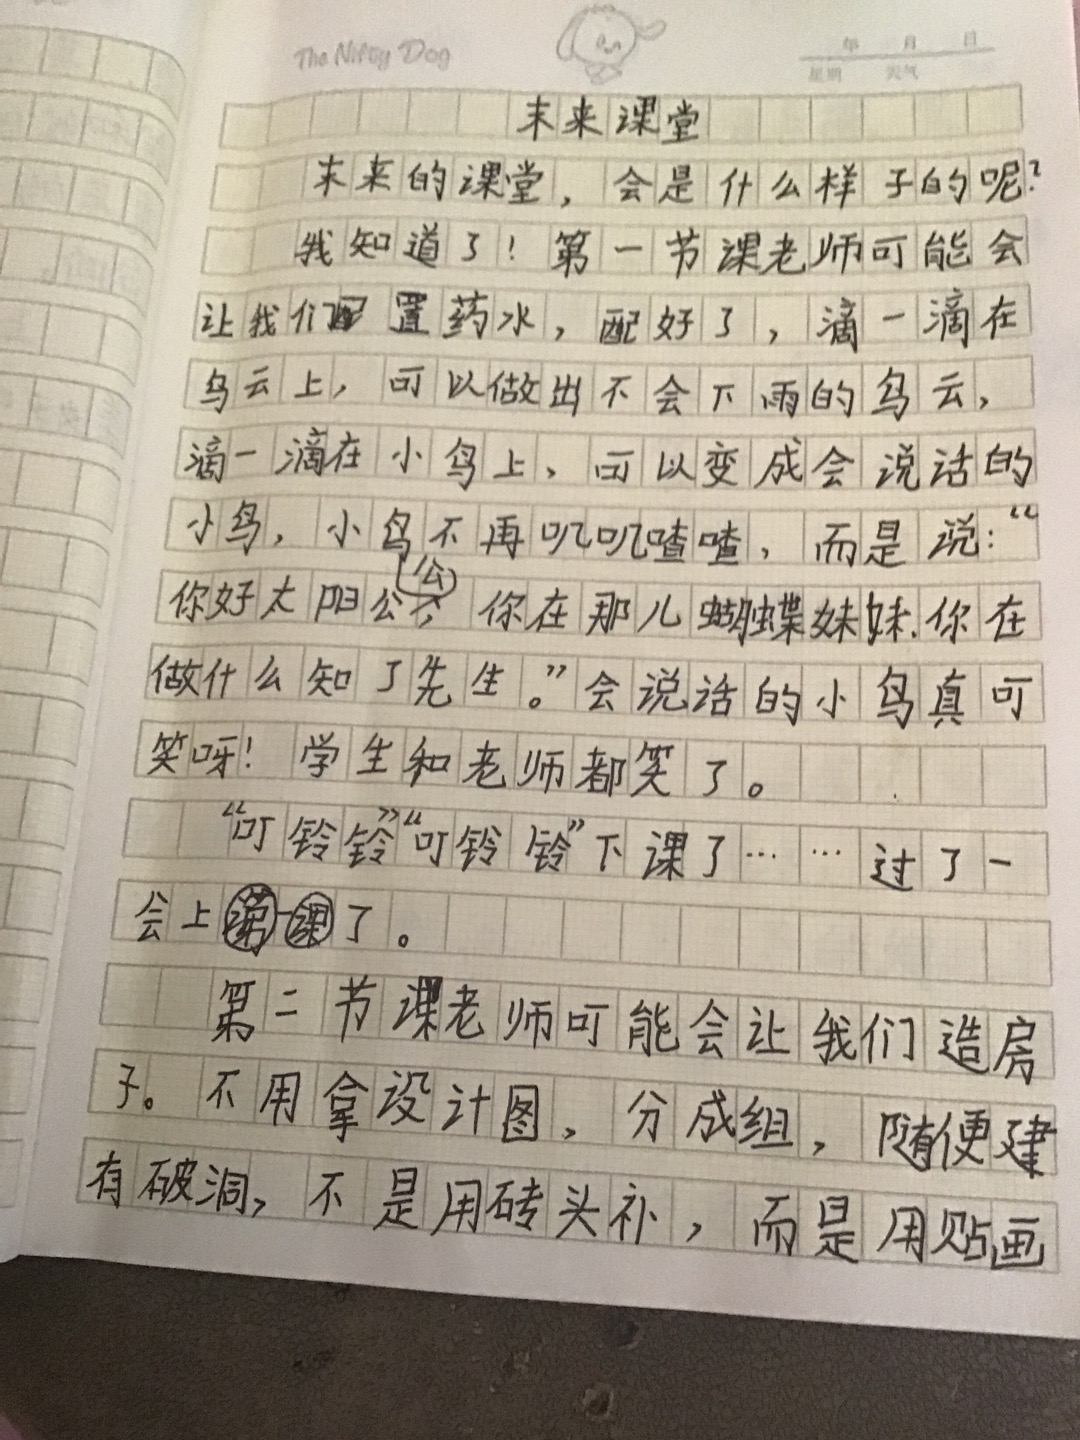 The Nifty Dog
年 月 日
星期 天气
末来课堂
末来的课堂，会是什么样子的呢？
我知道了！第一节课老师可能会
让我们配置药水，配好了，滴一滴在
乌云上，可以做出不会下雨的乌云，
滴一滴在小鸟上，可以变成会说话的
小鸟，小鸟不再叽叽喳喳，而是说：“
你好太阳公公，你在那儿蝴蝶妹妹.你在
做什么知了先生。”会说话的小鸟真可
笑呀！学生和老师都笑了。
“叮铃铃”“叮铃铃”下课了……过了一
会上课了。
第二节课老师可能会让我们造房
子。不用拿设计图，分成组，随便建
有破洞，不是用砖头补，而是用贴画